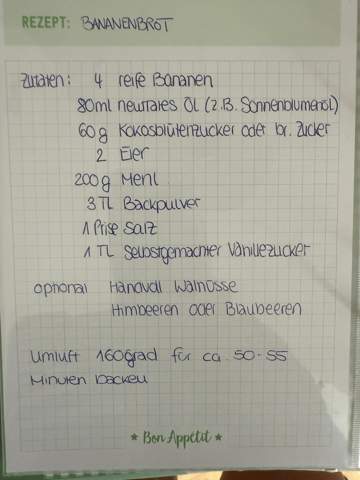 REZEPT: BANANENBROT
Zutaten: 4 reife Bananen
80ml neutrales Öl (z.B. Sonnenblumenöl)
60g Kokosblütenzucker oder br. Zucker
2 Eier
200g Mehl
3 TL Backpulver
1 Prise Salz
1 TL Selbstgemachter Vanillezucker
optional Handvoll Walnüsse
Himbeeren oder Blaubeeren
Umluft 160grad für ca 50-55
Minuten backen
★ Bon Appétit ★